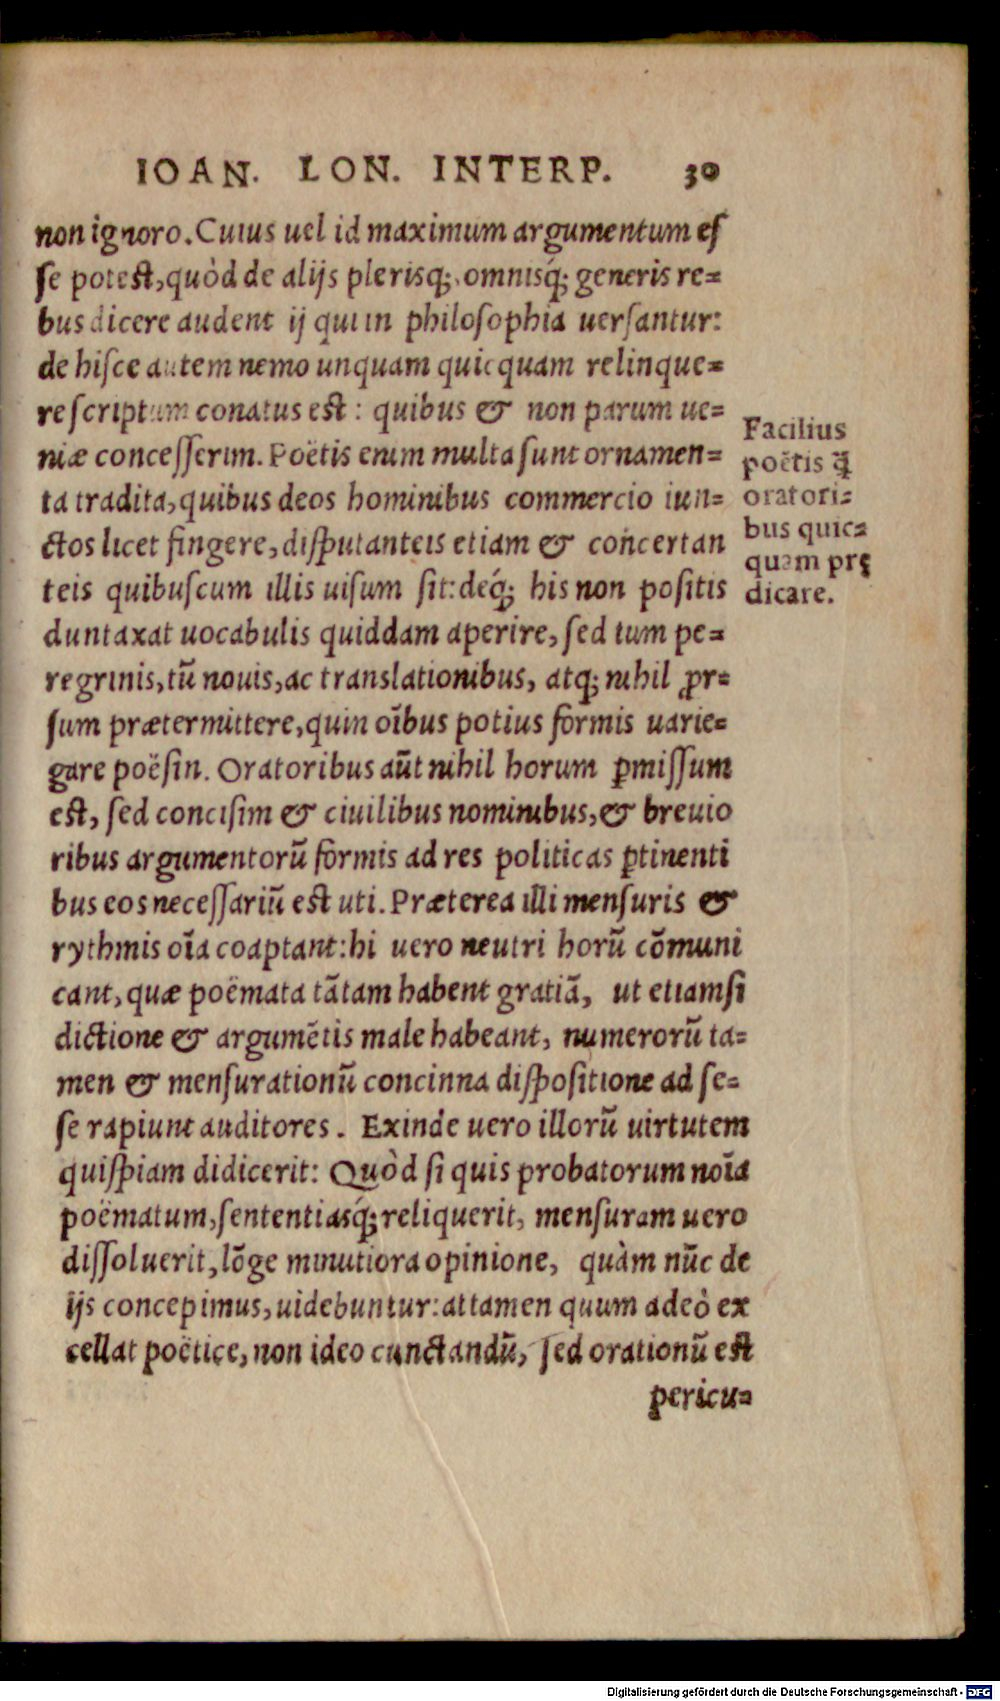 IOAN. LON. INTERP. 30
non ignoro. Cuius uel id maximum argumentum es
se potest, quòd de alijs plerisq;, omnisq́; generis re=
bus dicere audent ij qui in philosophia uersantur:
de hisce autem nemo unquam quicquam relinque=
re scriptum conatus est: quibus & non parum ue=
niæ concesserim. Poëtis enim multa sunt ornamen=
ta tradita, quibus deos hominibus commercio iun=
ctos licet fingere, disputanteis etiam & concertan
teis quibuscum illis uisum sit: deq́; his non positis
duntaxat uocabulis quiddam aperire, sed tum pe=
regrinis, tū nouis, ac translationibus, atq; nihil ꝓr=
sum prætermittere, quin oībus potius formis uarie=
gare poësin. Oratoribus aūt nihil horum ꝑmissum
est, sed concisim & ciuilibus nominibus, & breuio
ribus argumentorū formis ad res politicas ꝑtinenti
bus eos necessariū est uti. Præterea illi mensuris &
rythmis oīa coaptant: hi uero neutri horū cōmuni
cant, quæ poëmata tātam habent gratiā, ut etiamsi
dictione & argumētis male habeant, numerorū ta=
men & mensurationū concinna dispositione ad se=
se rapiunt auditores. Exinde uero illorū uirtutem
quispiam didicerit: Quòd si quis probatorum noīa
poëmatum, sententiasq́; reliquerit, mensuram uero
dissoluerit, lōge minutiora opinione, quàm nūc de
ijs concepimus, uidebuntur: attamen quum adeò ex
cellat poëtice, non ideo cunctandū, sed orationū est
pericu=
Facilius
poëtis q̄
oratori=
bus quic=
quam prę
dicare.
Digitalisierung gefördert durch die Deutsche Forschungsgemeinschaft - DFG